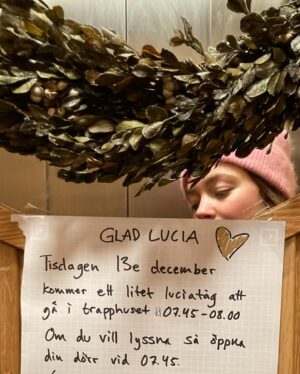 GLAD LUCIA
Tisdagen 13e december
kommer ett litet luciatåg att
gå i trapphuset 07.45-08.00
Om du vill lyssna så öppna
din dörr vid 07.45.